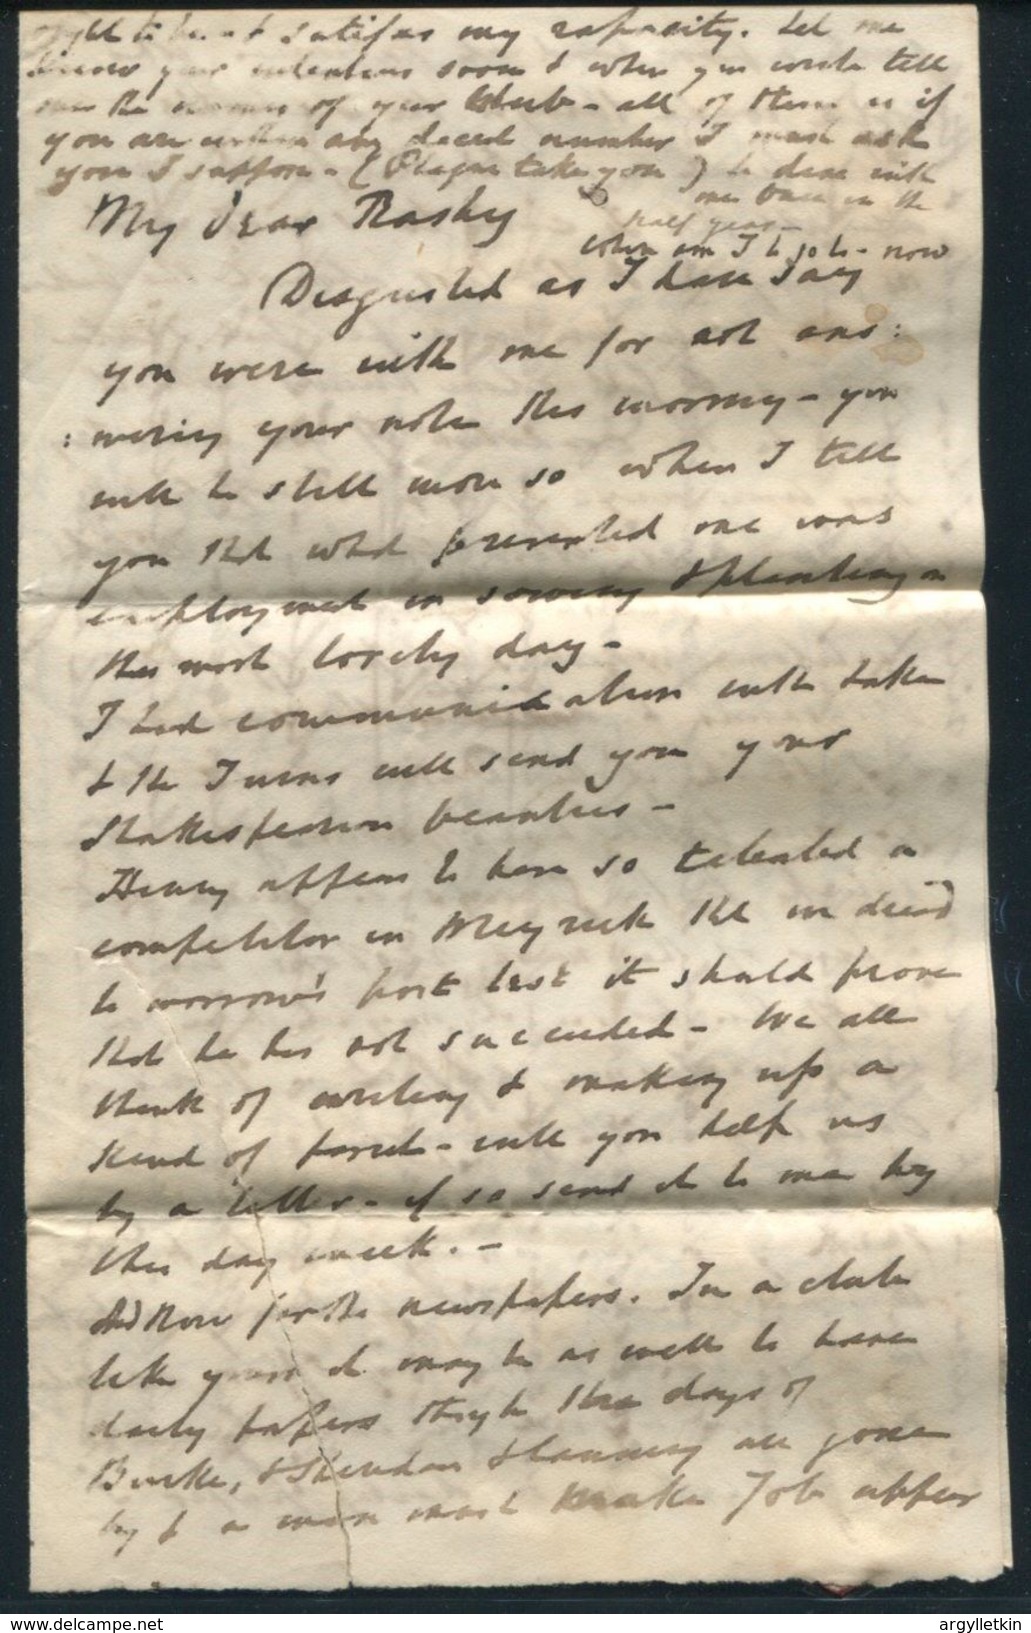 satisfies my rapacity. Let me
know your intentions soon & when you write tell
me the names of your Club - all of them as if
you are within any decent number I must ask
you I suppose - (Plague take you) to dine with
me once in the
half year -
when am I to go to - now
My dear Rashy
Disgusted as I dare say
you were with me for not ans:
:wering your note this morning - you
will be still more so when I tell
you that what prevented me was
employment in sowing & planting on
this most lovely day -
I had communication with
& the will send you your
Shakespearian beauties -
Henry appears to have so talented a
competitor in Meyrick that we dread
to morrow's post lest it should prove
that he has not succeeded - We all
think of writing & making up a
kind of - will you help us
by a letter - if so send it to me by
this day week. -
And Now for the newspapers. In a club
like yours it may be as well to have
daily papers though the days of
Burke, & Sheridan & Canning are gone
by & a man must make Job appear
argylletkin